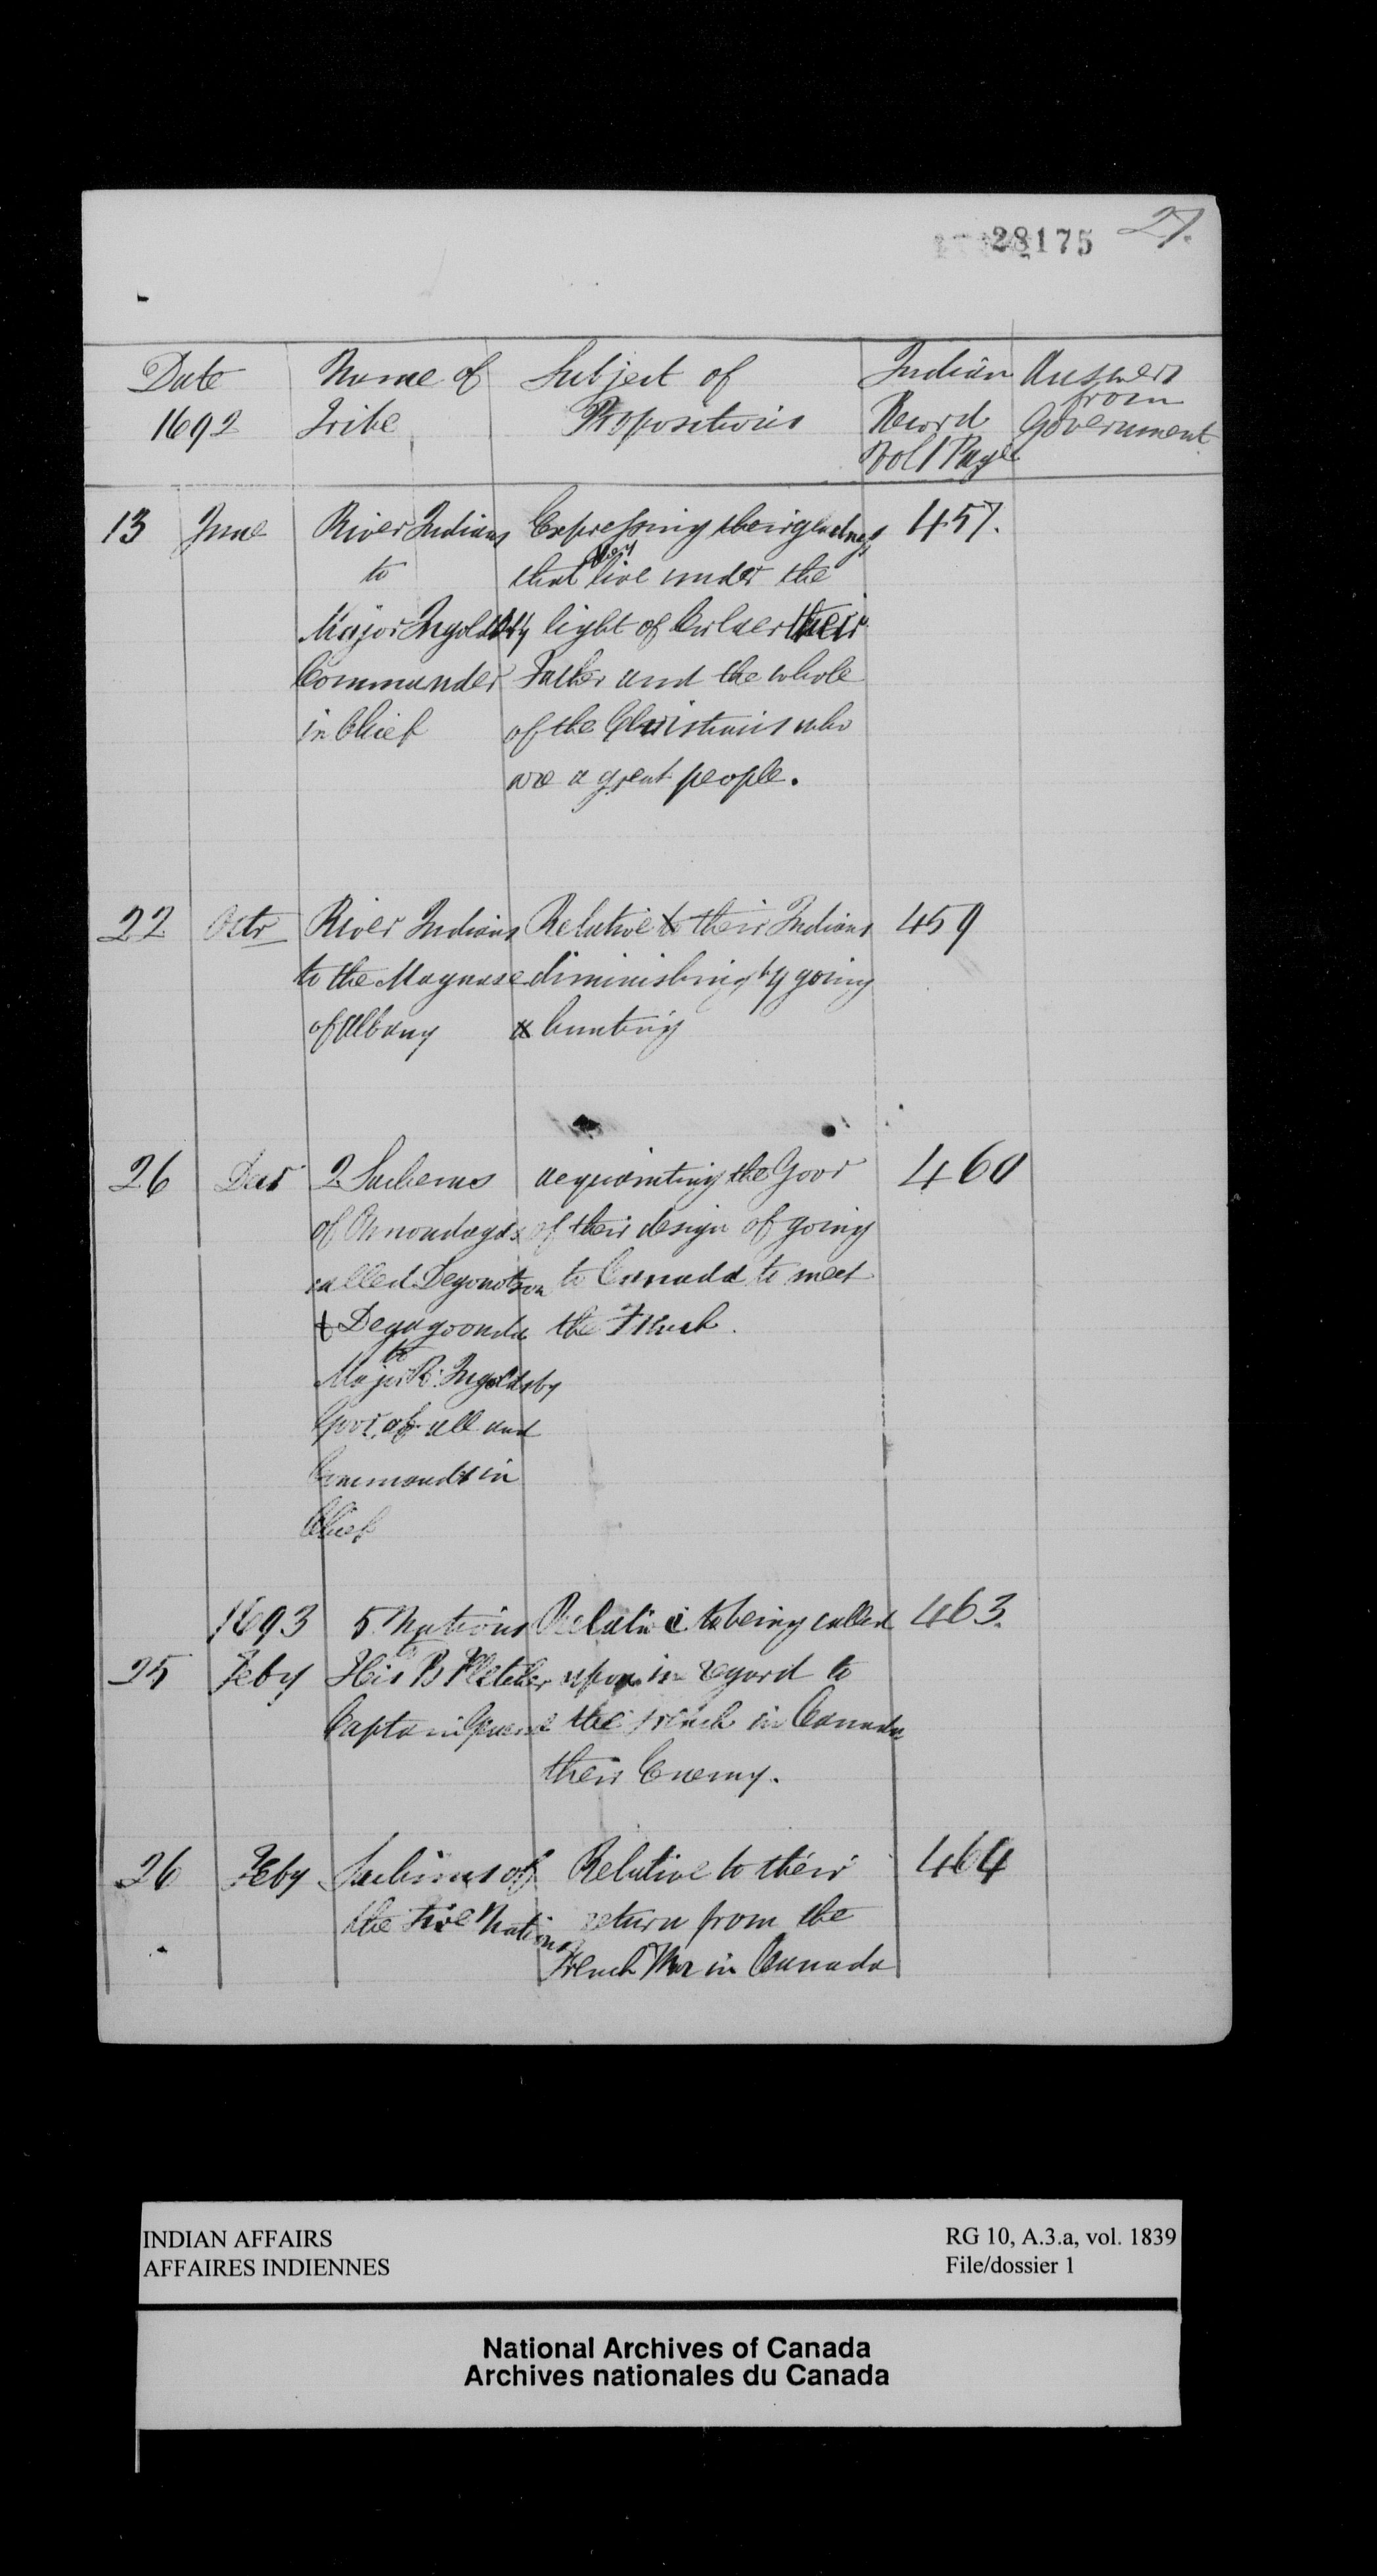 28175 27.
Date Name of Subject of Indian Answers
from
1692 Tribe Propositions Record Government
Vol 1 Page
13 June River Indians Expressing their gladness 457.
to that they live under the
Major Ingoldsby light of Corlaer their
Commander Father and the whole
in Chief of the Christians who
are a great people.
22 Octr River Indians Relative to their Indians 459
to the Maquase diminishing by going
of Albany a hunting
26 Decr 2 Sachems acquainting the Govr 460
of Onnondages of their design of going
called Degonotson to Canada to meet
& Degagoonda the French.
to
Major R. Ingoldsby
Govr of all and
Commandr in
Chief
1693 5 Nations Relative to being called 463.
to
25 Feby His B Fletcher upon in regard to
Captain General the French in Canada
their Enemy.
26 Feby Sachims of Relative to their 464
the Five Nations return from the
French War in Canada
INDIAN AFFAIRS RG 10, A.3.a, vol. 1839
AFFAIRES INDIENNES File/dossier 1
National Archives of Canada
Archives nationales du Canada